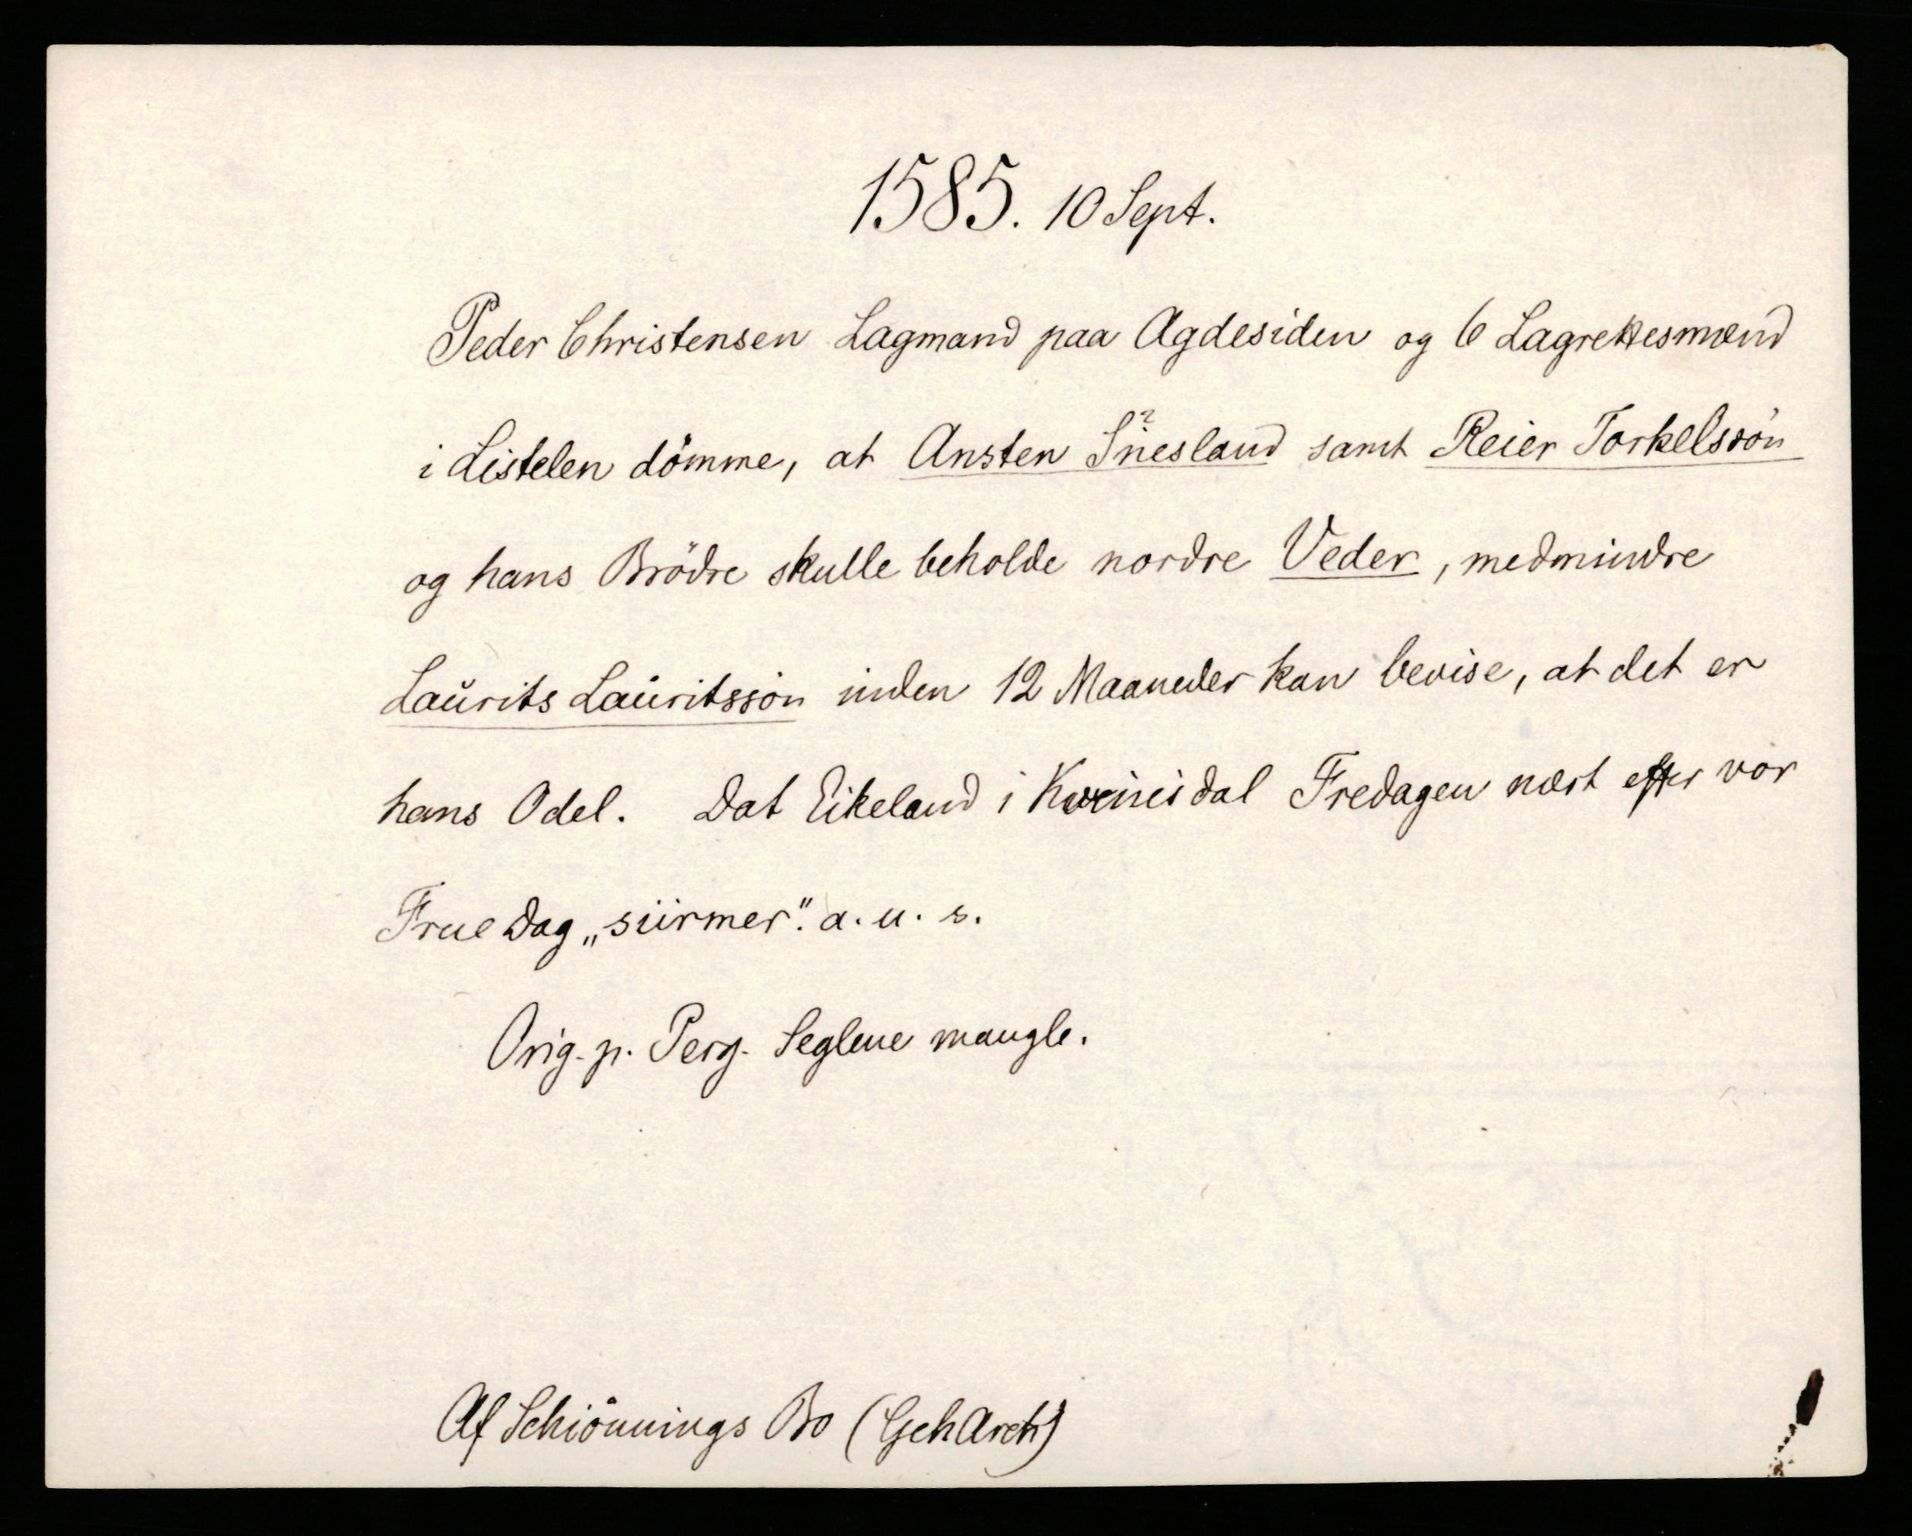 1585. 10 Sept.
Peder Christensen Lagmand paa Agdesiden og 6 Lagrettesmænd
i Listelen dömme, at Ansten Sinesland samt Reier Torkelssön
og hans Brödre skulle beholde nordre Veder, medmindre
Laurits Lauritssön inden 12 Maaneder kan bevise, at det er
hans Odel. Dat Eikeland i Kvinisdal Fredagen næst efter vor
Frue Dag „siirmer". a. u. s.
Orig. p. Perg. Seglene mangle.
Af Schiönnings Bo (Geh Arch)